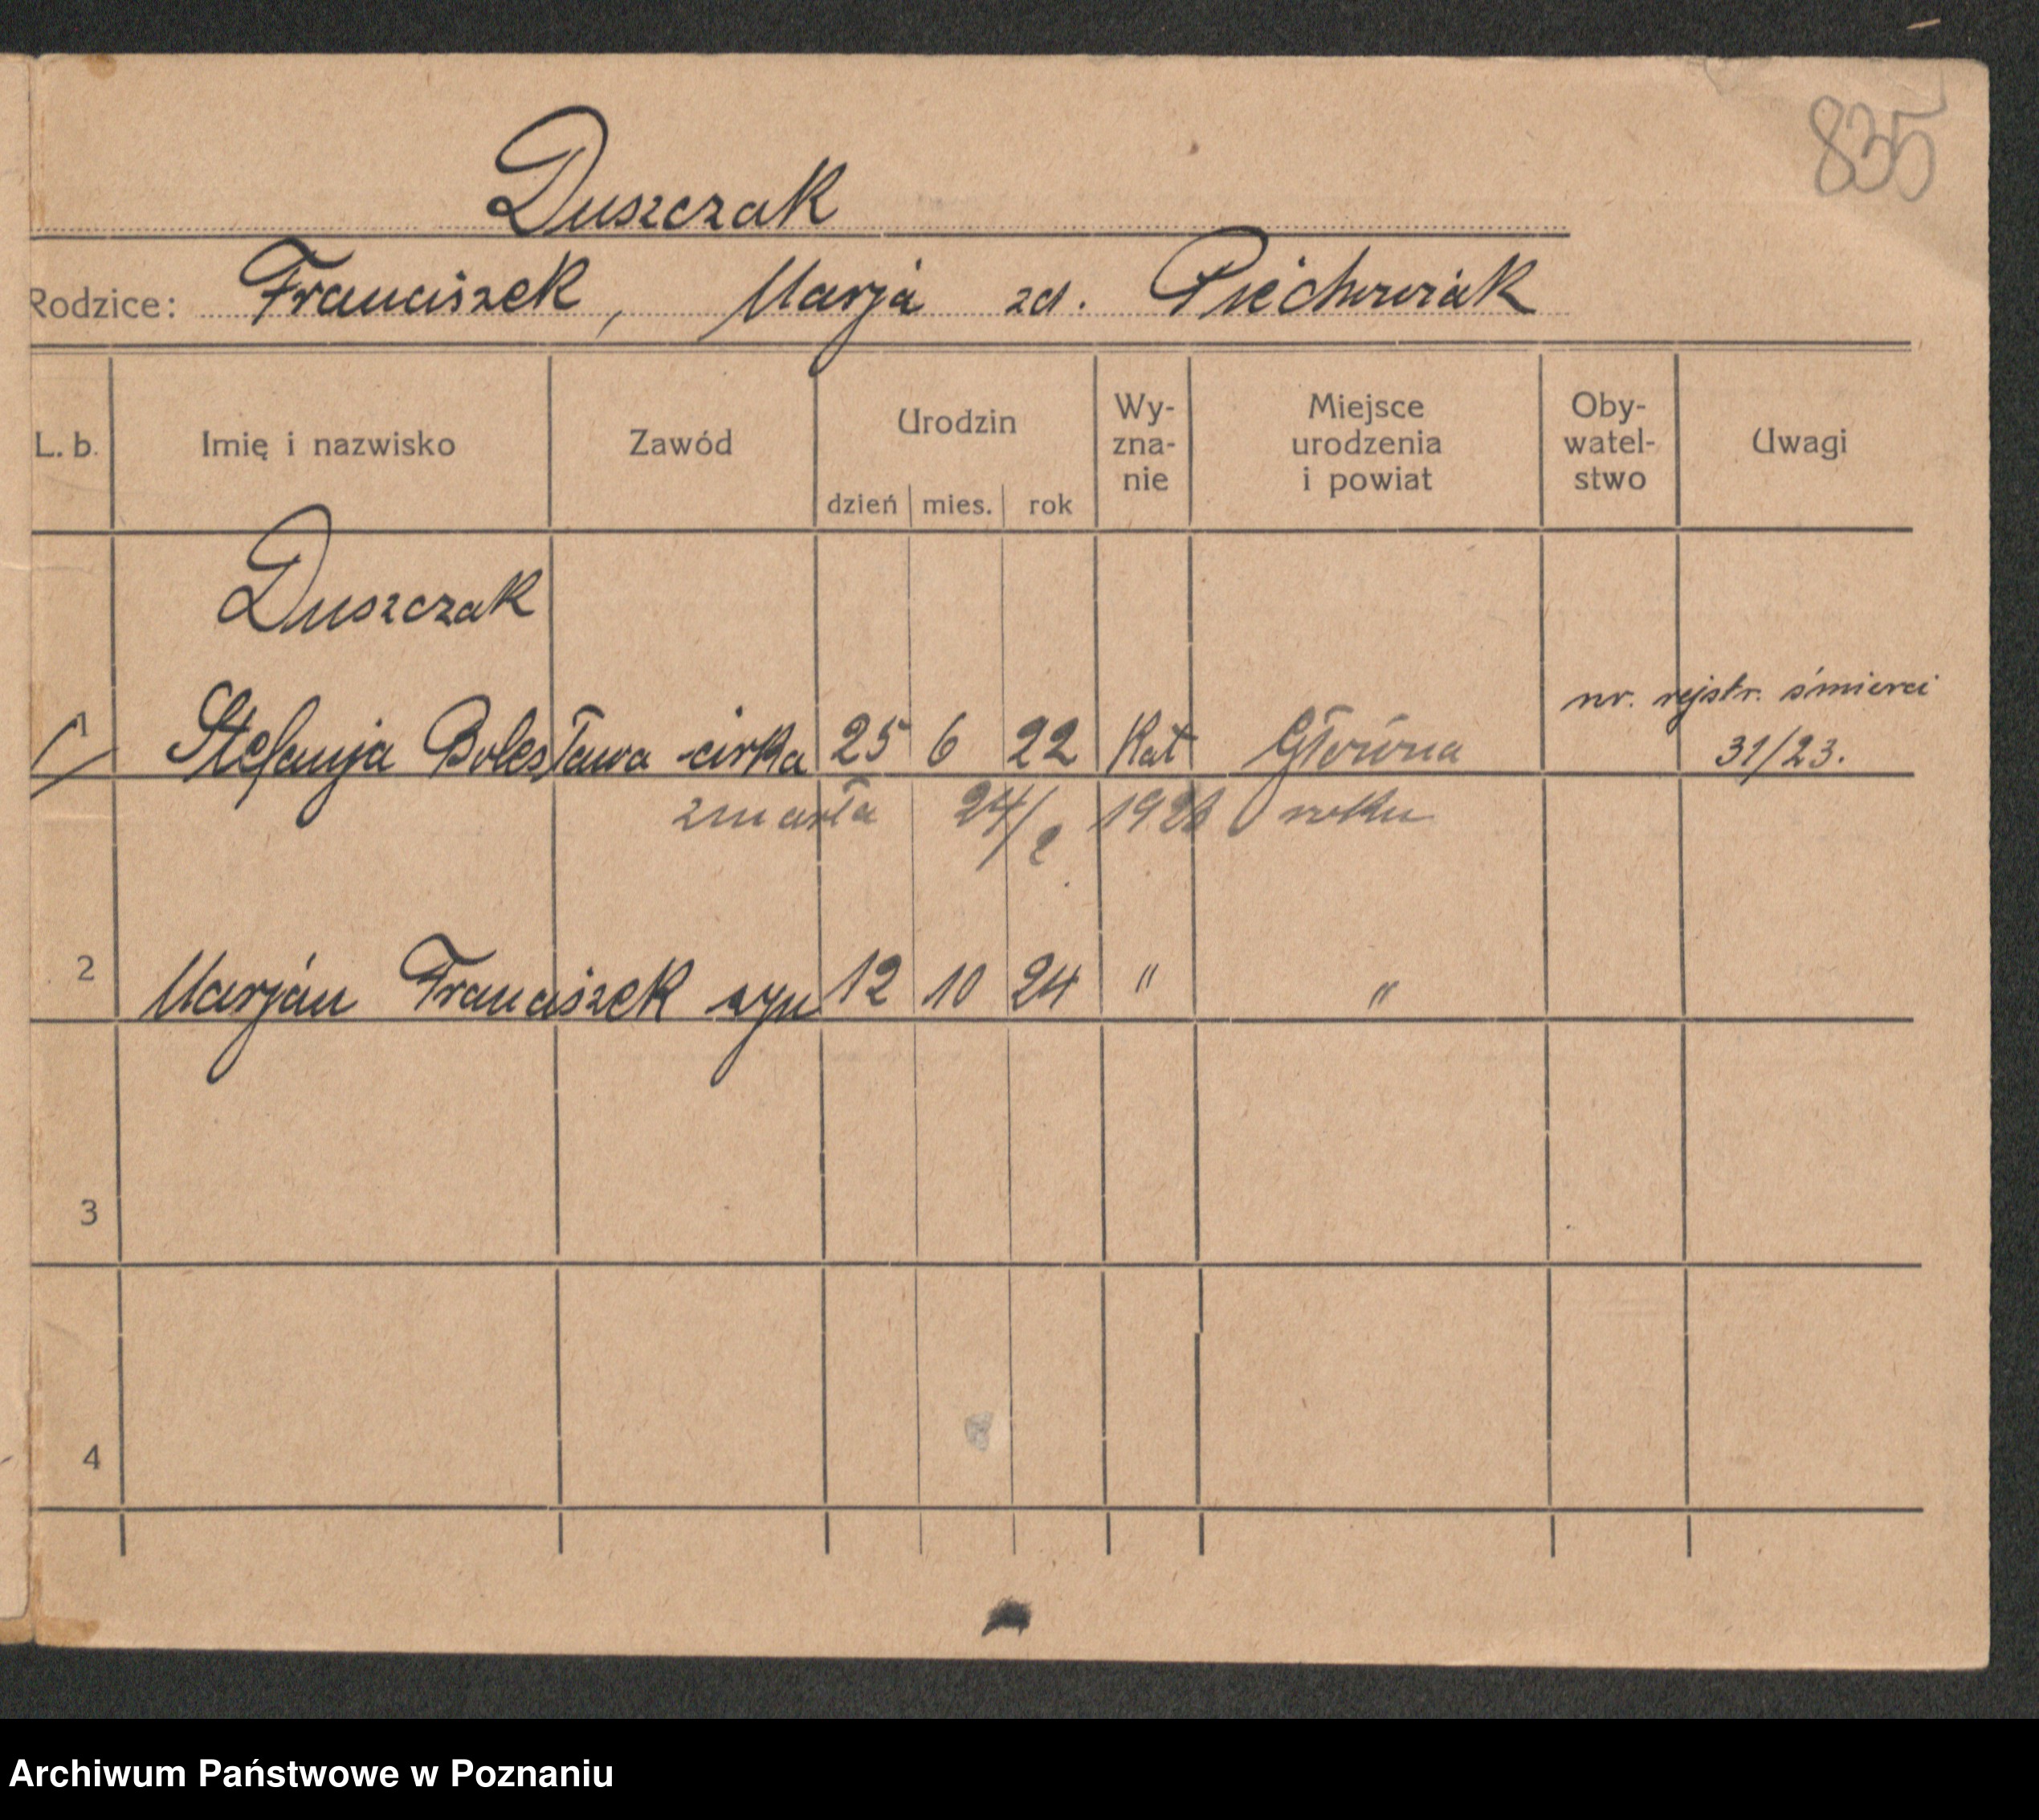 835
Duszczak
Rodzice: Franciszek, Marja zd. Piechowiak
L. b. Imię i nazwisko Zawód Urodzin dzień mies. rok Wy-zna-nie Miejsce urodzenia i powiat Oby-watel-stwo Uwagi
Duszczak
nr. rejstr. śmierci
1 Stefanja Bolesława córka 25 6 22 Kat Główna 31/23.
zmarła 24/2 1923 roku
2 Marjan Franciszek syn 12 10 24 " "
3
4
Archiwum Państwowe w Poznaniu